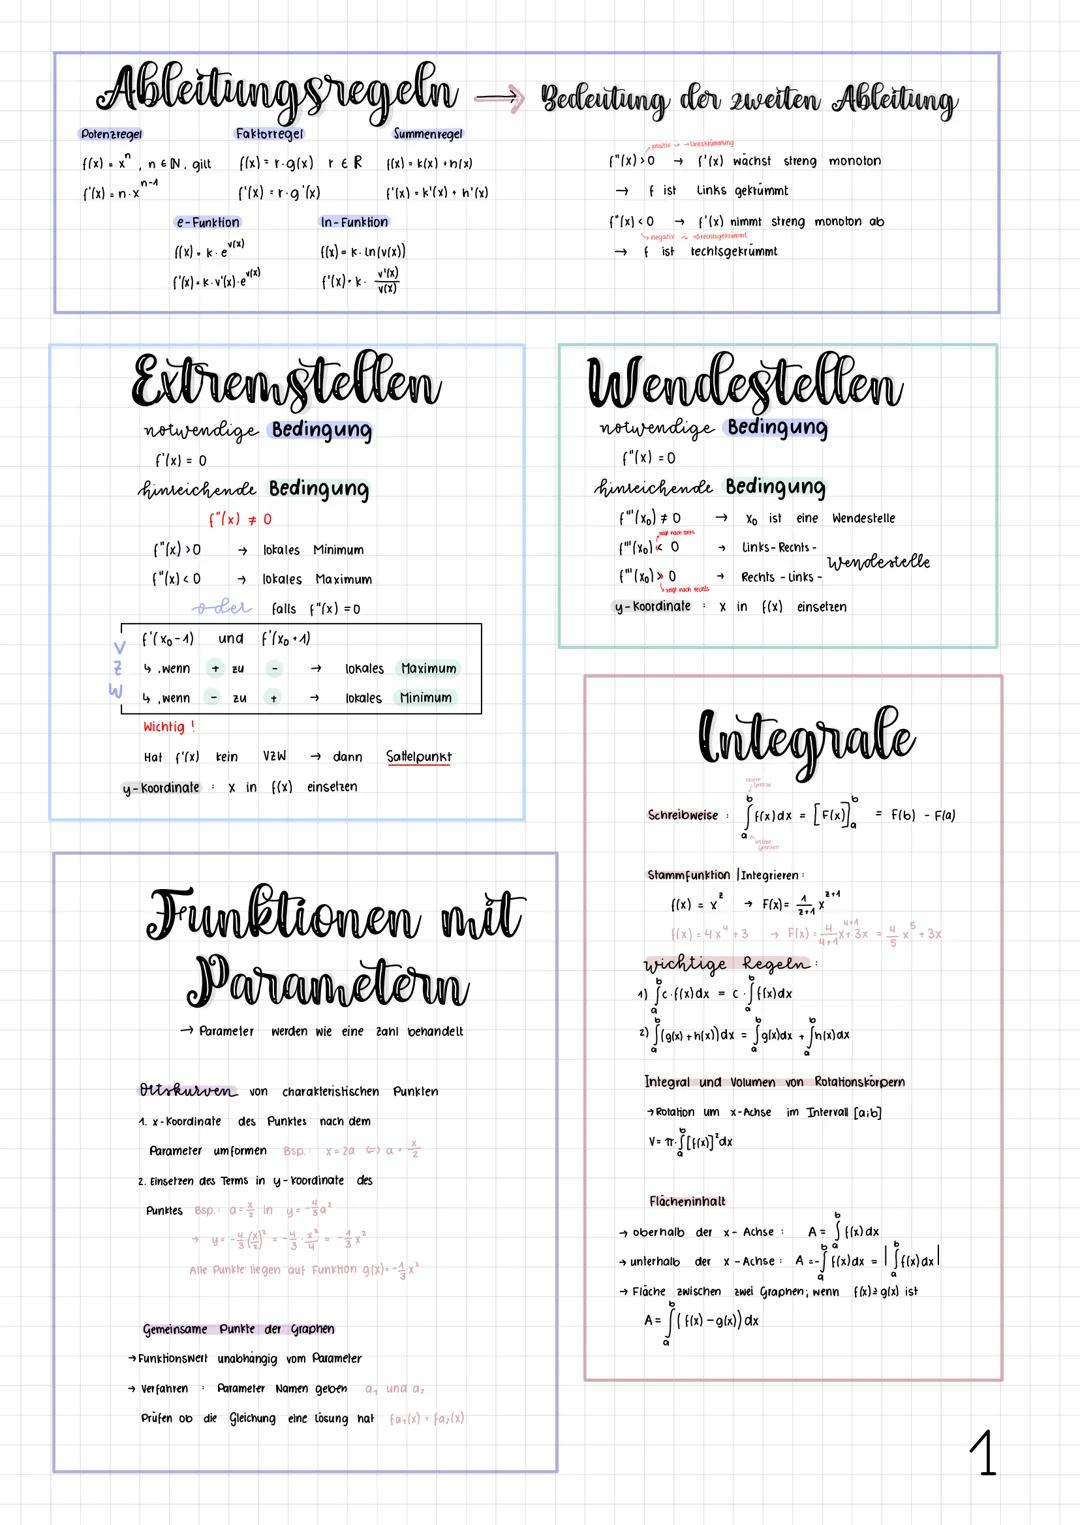 Ableitungsregeln → Bedeutung der zweiten Ableitung
Potenzregel
f(x) = xⁿ , n ∈ ℕ, gilt
f'(x) = n·xⁿ⁻¹
Faktorregel
f(x) = r·g(x) r ∈ R
f'(x) = r·g'(x)
Summenregel
f(x) = k(x) + h(x)
f'(x) = k'(x) + h'(x)
e-Funktion
f(x) = k·e^v(x)
f'(x) = k·v'(x)·e^v(x)
ln-Funktion
f(x) = k·ln(v(x))
f'(x) = k· v'(x)/v(x)
positiv → Linkskrümmung
f''(x) > 0 → f'(x) wächst streng monoton
→ f ist links gekrümmt
f''(x) < 0 → f'(x) nimmt streng monoton ab
negativ → rechtsgekrümmt
→ f ist rechtsgekrümmt
Extremstellen
notwendige Bedingung
f'(x) = 0
hinreichende Bedingung
f''(x) ≠ 0
f''(x) > 0 → lokales Minimum
f''(x) < 0 → lokales Maximum
oder falls f''(x) = 0
VZW
f'(x₀-1) und f'(x₀+1)
↳ .wenn + zu - → lokales Maximum
↳ .wenn - zu + → lokales Minimum
Wichtig !
Hat f'(x) kein VZW → dann Sattelpunkt
y-Koordinate : x in f(x) einsetzen
Wendestellen
notwendige Bedingung
f''(x) = 0
hinreichende Bedingung
f'''(x₀) ≠ 0 → x₀ ist eine Wendestelle
zeigt nach links
f'''(x₀) < 0 → Links-Rechts-
Wendestelle
f'''(x₀) > 0 → Rechts-Links-
zeigt nach rechts
y-Koordinate : x in f(x) einsetzen
Integrale
obere Grenze
Schreibweise : ∫ₐᵇ f(x)dx = [F(x)]ₐᵇ = F(b) - F(a)
untere Grenze
Stammfunktion | Integrieren :
f(x) = x^z → F(x) = 1/(z+1) x^(z+1)
f(x) = 4x⁴ + 3 → F(x) = 4/(4+1) x^(4+1) + 3x = 4/5 x⁵ + 3x
wichtige Regeln :
1) ∫ₐᵇ c·f(x)dx = c·∫ₐᵇ f(x)dx
2) ∫ₐᵇ (g(x) + h(x))dx = ∫ₐᵇ g(x)dx + ∫ₐᵇ h(x)dx
Integral und Volumen von Rotationskörpern
→ Rotation um x-Achse im Intervall [a;b]
V = π·∫ₐᵇ [f(x)]²dx
Flächeninhalt
→ oberhalb der x-Achse : A = ∫ₐᵇ f(x)dx
→ unterhalb der x-Achse : A = -∫ₐᵇ f(x)dx = |∫ₐᵇ f(x)dx|
→ Fläche zwischen zwei Graphen; wenn f(x) ≥ g(x) ist
A = ∫ₐᵇ (f(x) - g(x))dx
Funktionen mit
Parametern
→ Parameter werden wie eine Zahl behandelt
Ortskurven von charakteristischen Punkten
1. x-Koordinate des Punktes nach dem
Parameter umformen Bsp.: x = 2a ⇔ a = x/2
2. Einsetzen des Terms in y-Koordinate des
Punktes Bsp.: a = x/2 in y = -4/3 a²
→ y = -4/3 (x/2)² = -4/3 · x²/4 = -1/3 x²
Alle Punkte liegen auf Funktion g(x) = -1/3 x²
Gemeinsame Punkte der Graphen
→ Funktionswert unabhängig vom Parameter
→ Verfahren : Parameter Namen geben a₁ und a₂
Prüfen ob die Gleichung eine Lösung hat fa₁(x) = fa₂(x)
1